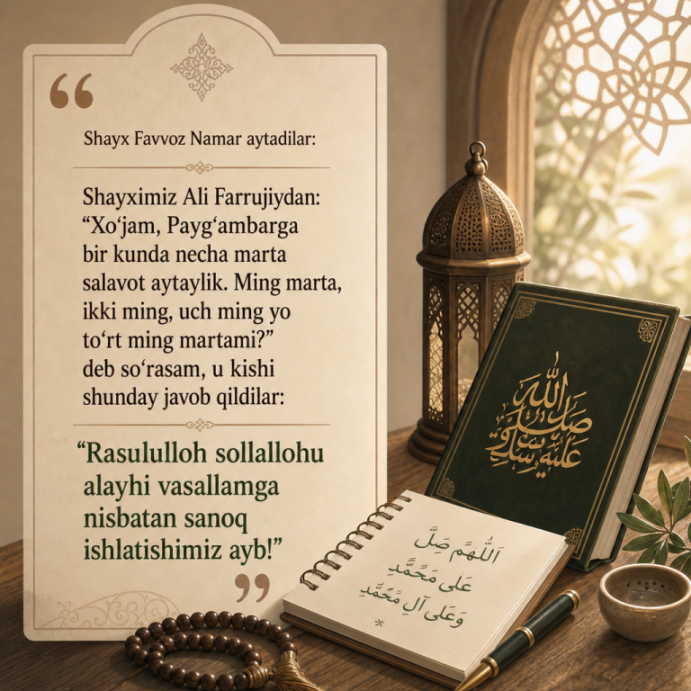 Shayx Favvoz Namar aytadilar:
Shayximiz Ali Farrujiydan:
“Xo‘jam, Payg‘ambarga
bir kunda necha marta
salavot aytaylik. Ming marta,
ikki ming, uch ming yo
to‘rt ming martami?”
deb so‘rasam, u kishi
shunday javob qildilar:
“Rasululloh sollallohu
alayhi vasallamga
nisbatan sanoq
ishlatishimiz ayb!”
اَللّٰهُمَّ صَلِّ
عَلٰى مُحَمَّدٍ
وَعَلٰى آلِ مُحَمَّدٍ